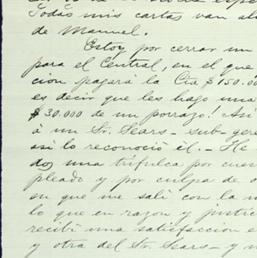 Todas mis cartas van al
de Manuel.
Estoy por cerrar un
para el Central, en el que
cion pagará la Cía $150.00
es decir que les hago una
$30.000 de un porrazo. Así
á un Sr. Sears - sub-gere
así lo reconoció él. - He
dos una trifulca por cues
pleado y por culpa de o
su que me salí con la m
lo que en razon y justic
recibí una satisfaccion e
y otra del Sr. Sears - y n